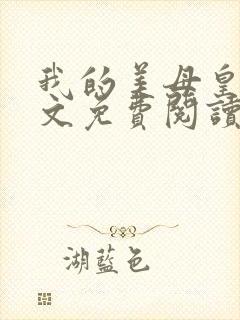 我的美母皇
文免費閱讀
湖藍色